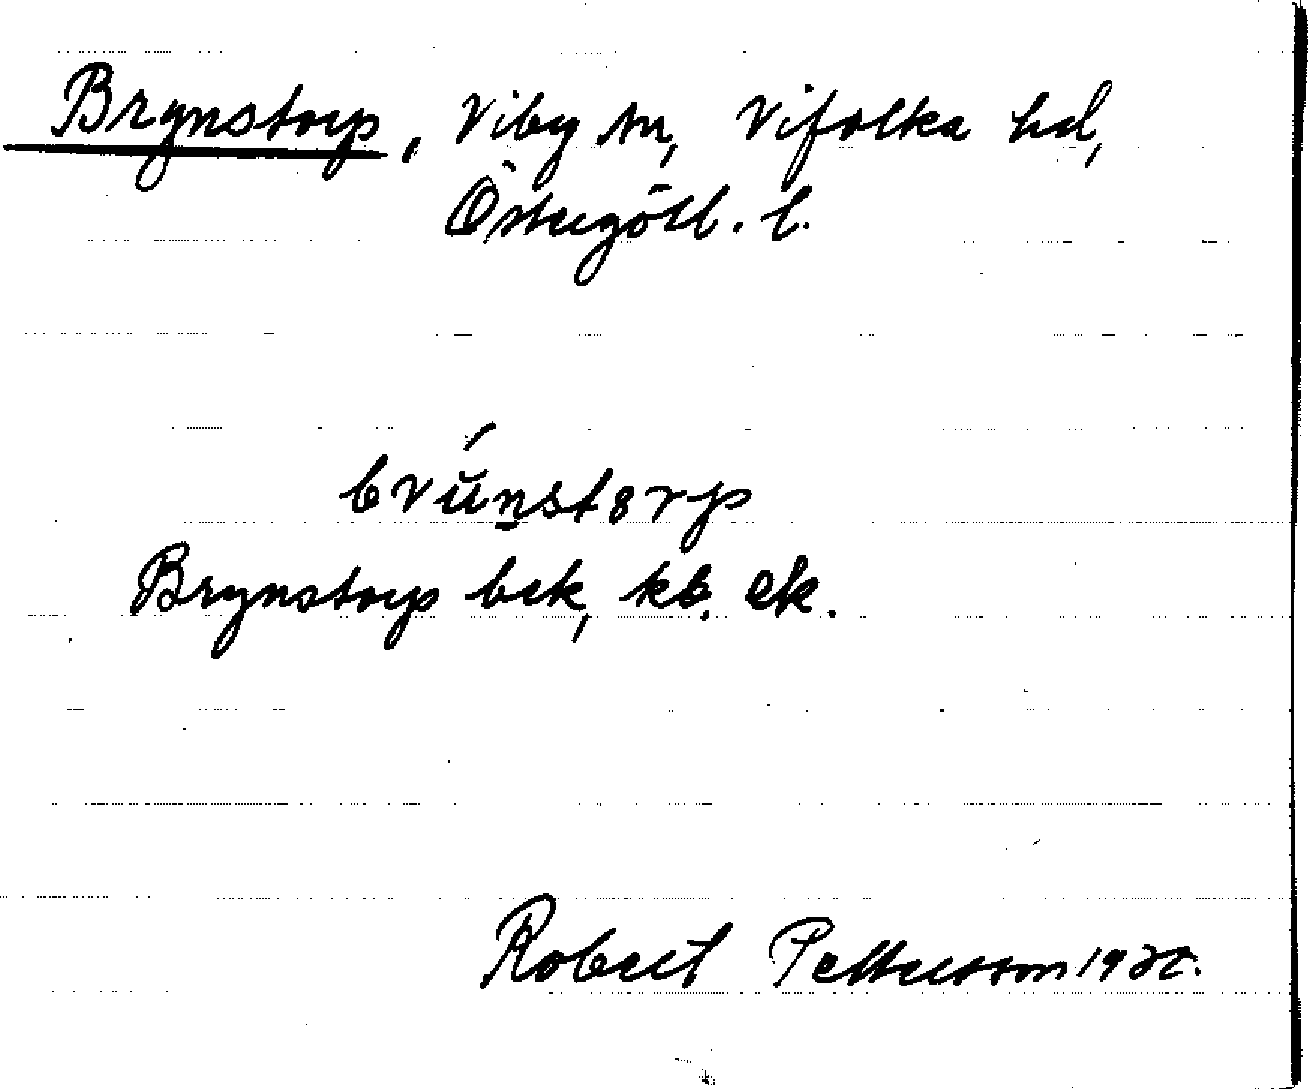 Brynstorp, Viby sn, Vifolka hd,
Östergötl. l.
Brynstorp bek, kb. ek.
Robert Pettersson